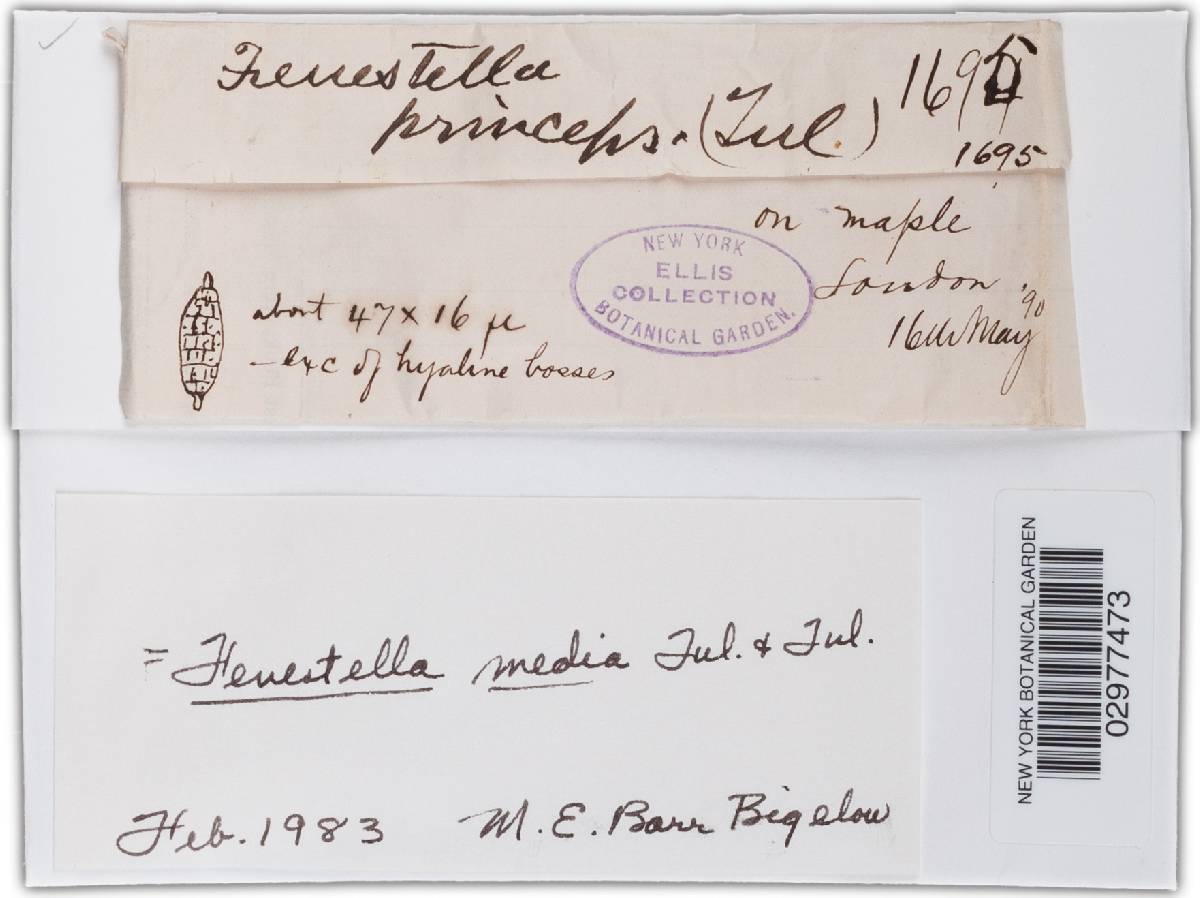 Fenestella
princeps. (Tul.)
1695
1695
on maple
London
16th May '90
NEW YORK
ELLIS
COLLECTION
BOTANICAL GARDEN.
about 47 x 16 µ
- exc of hyaline bosses
= Fenestella media Tul. & Tul.
Feb. 1983 M. E. Barr Bigelow
NEW YORK BOTANICAL GARDEN
02977473